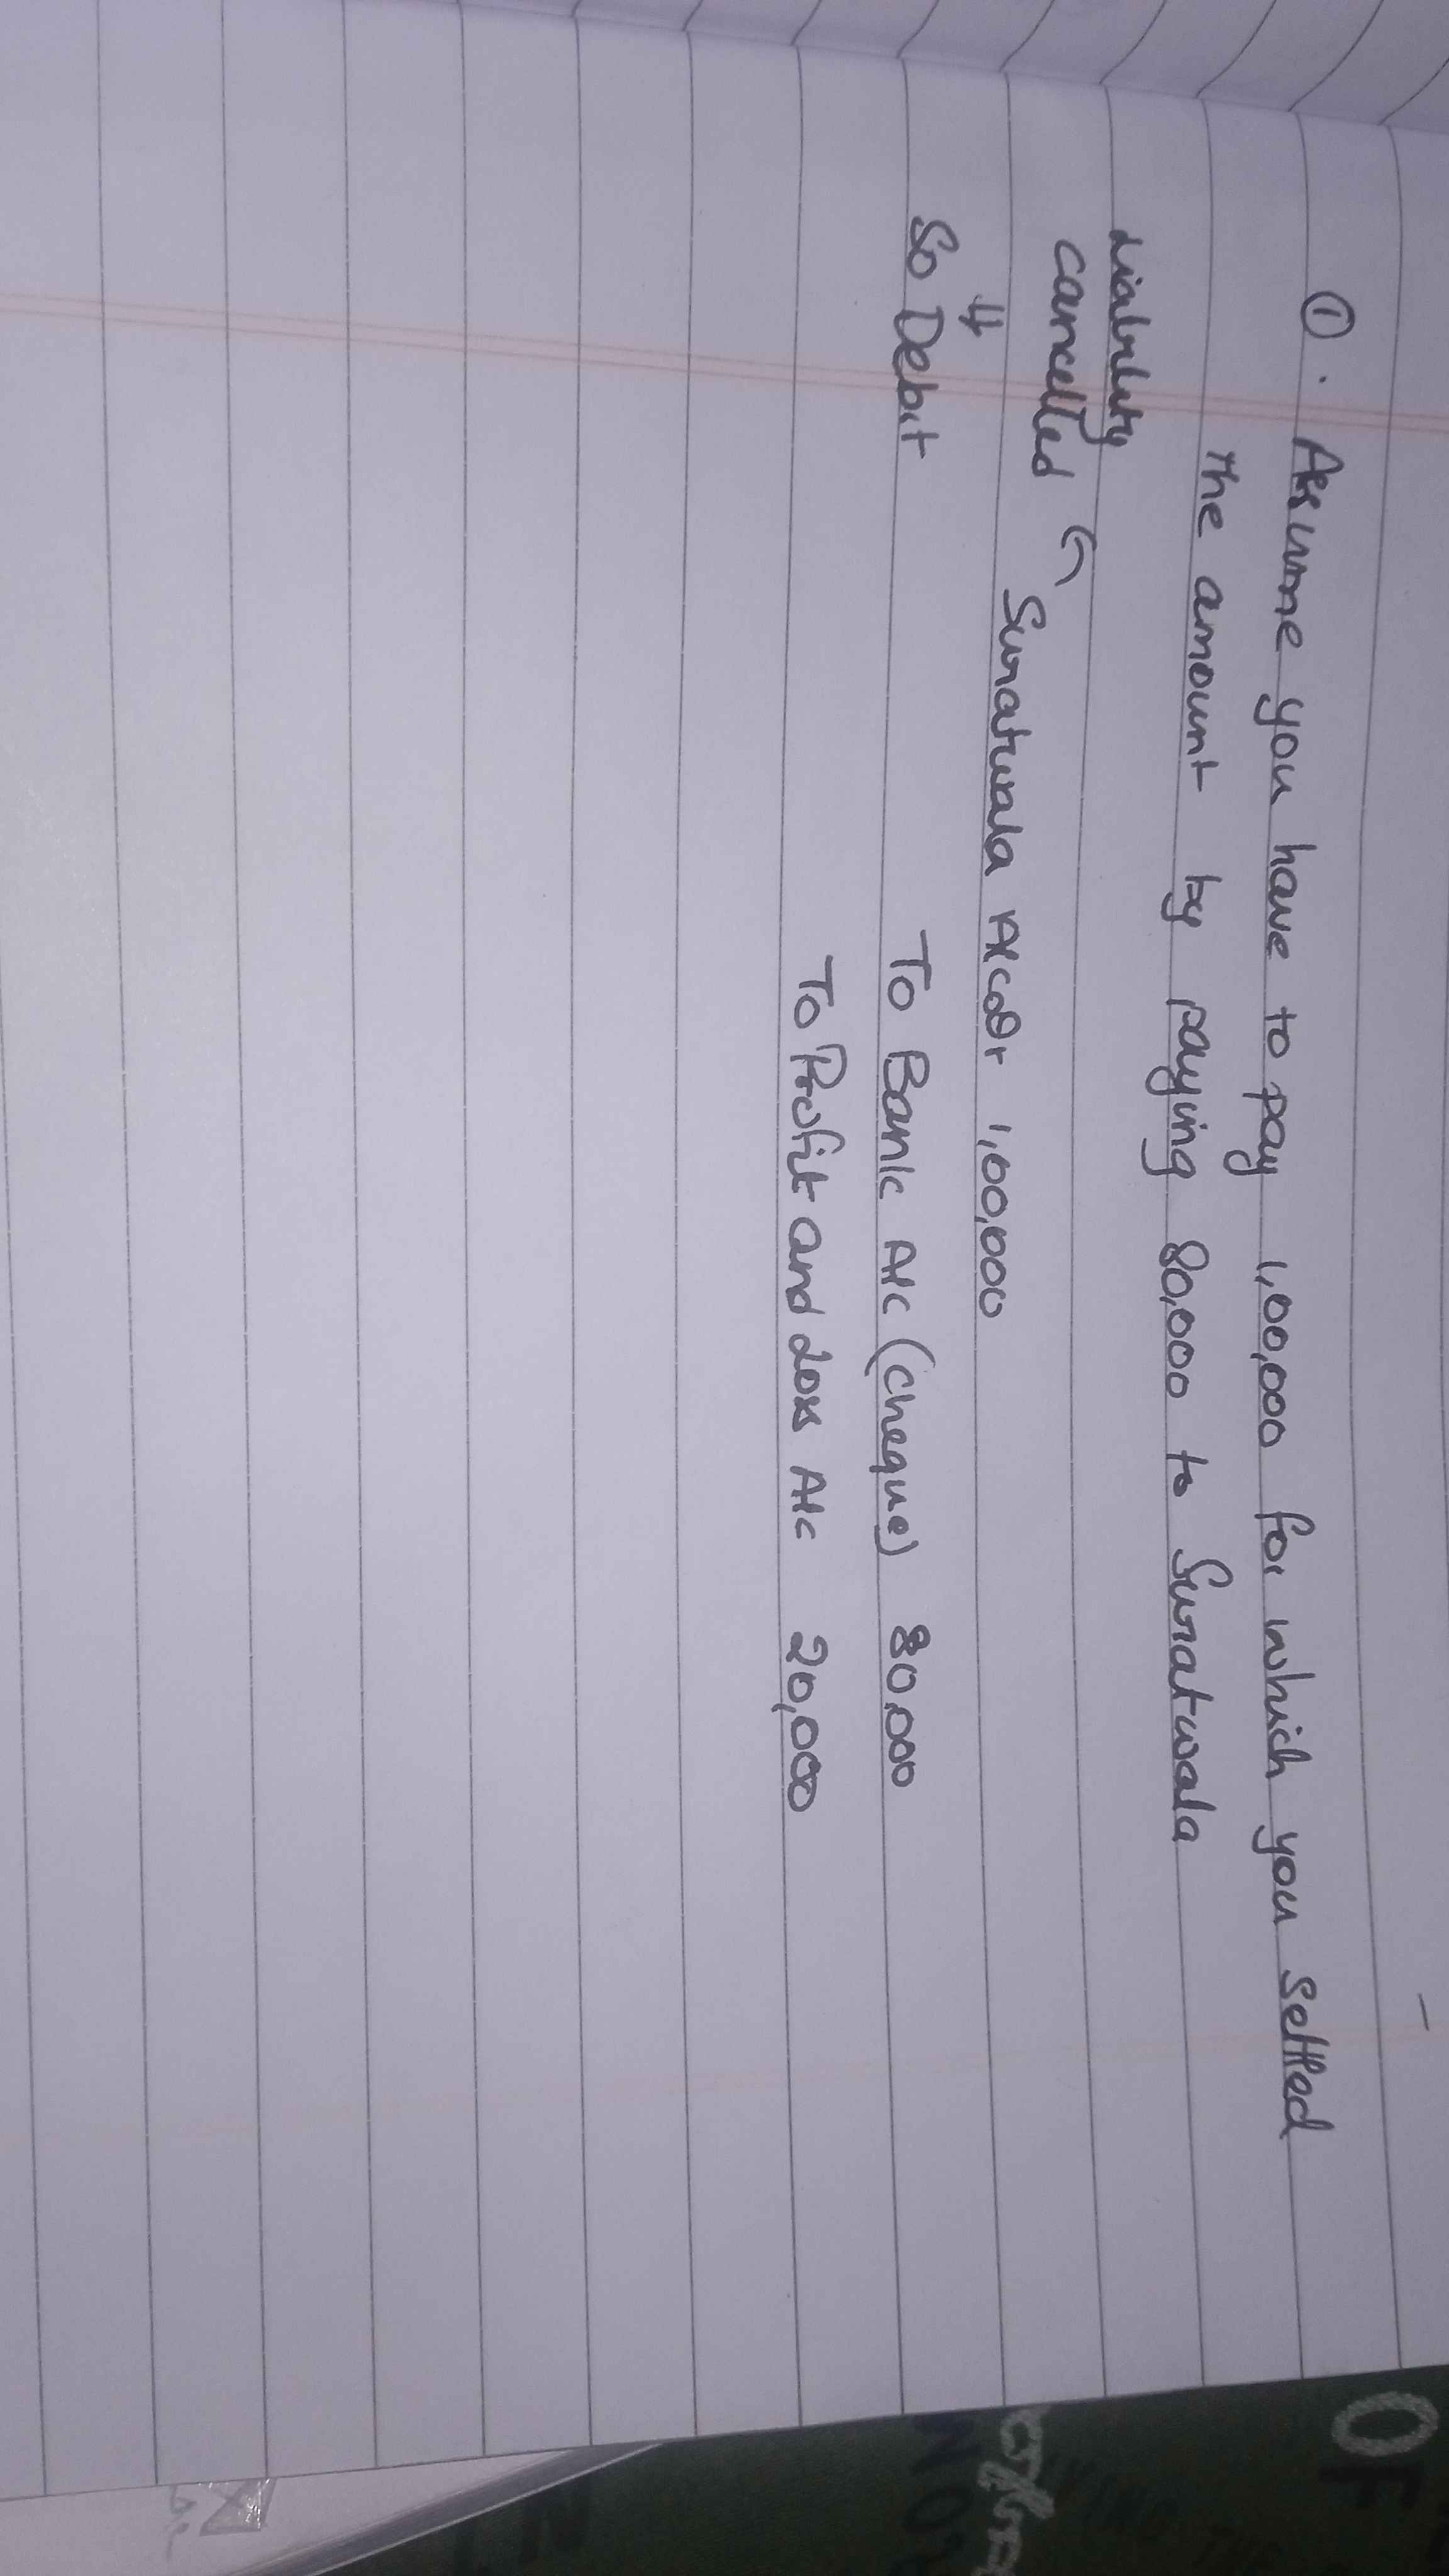 ①. Assume you have to pay 1,00,000 for which you settled
the amount by paying 80,000 to Suratwala
Liability
cancelled
Suratwala A/c Dr 1,00,000
⇓
So Debit
To Bank A/c (cheque) 80,000
To Profit and Loss A/c 20,000
OF